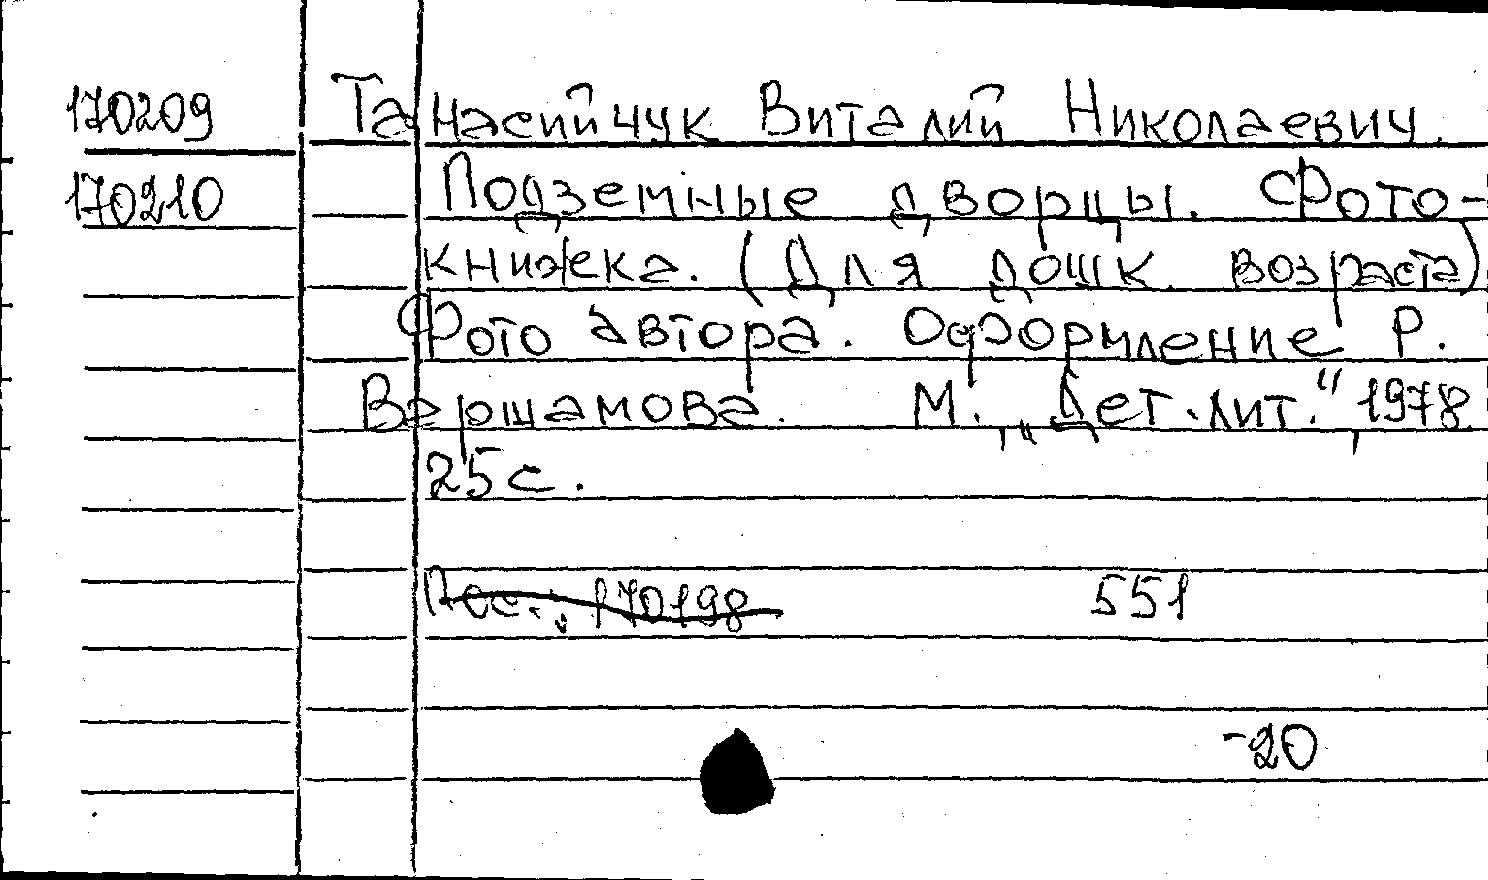 170209 Танасийчук Виталий Николаевич.
170210 Подземные дворцы. Фото-
книжка. (Для дошк. возраста)
Фото автора. Оформление Р.
Варшамова. М., „Дет. лит.“, 1978
25 с.
170198 551
-20